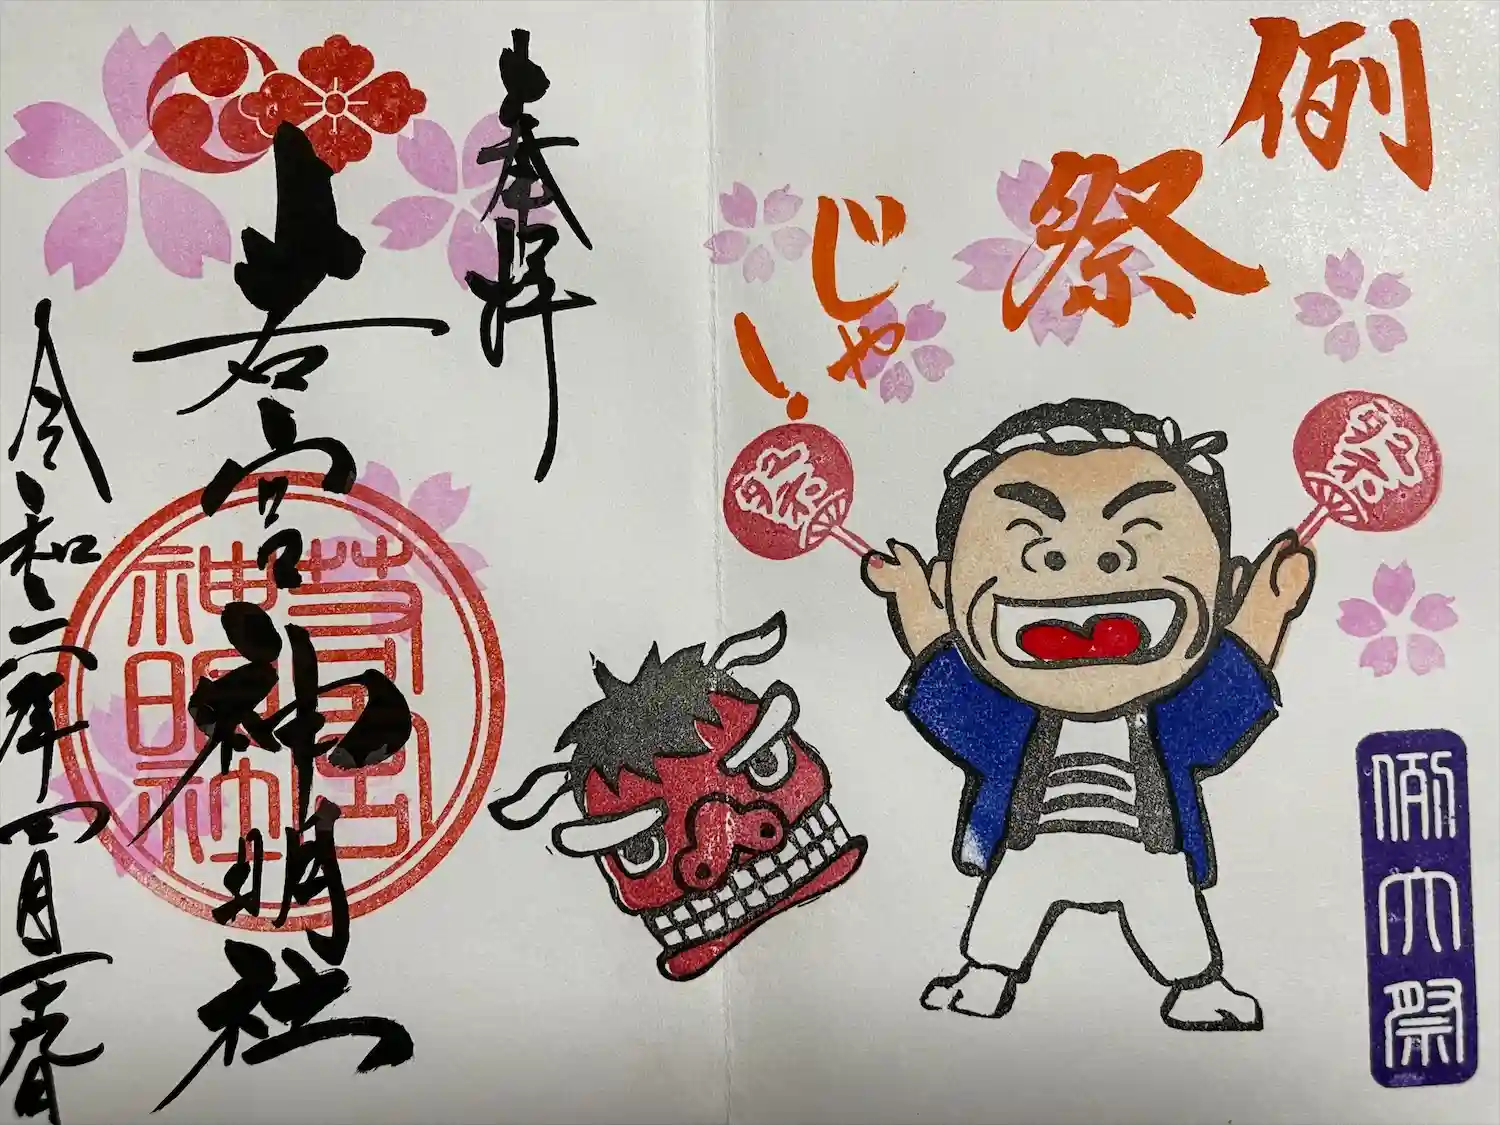 例
祭
じゃ!
祭
祭
例大祭
奉拝
若宮神明社
若宮
神明社
令和
年四月